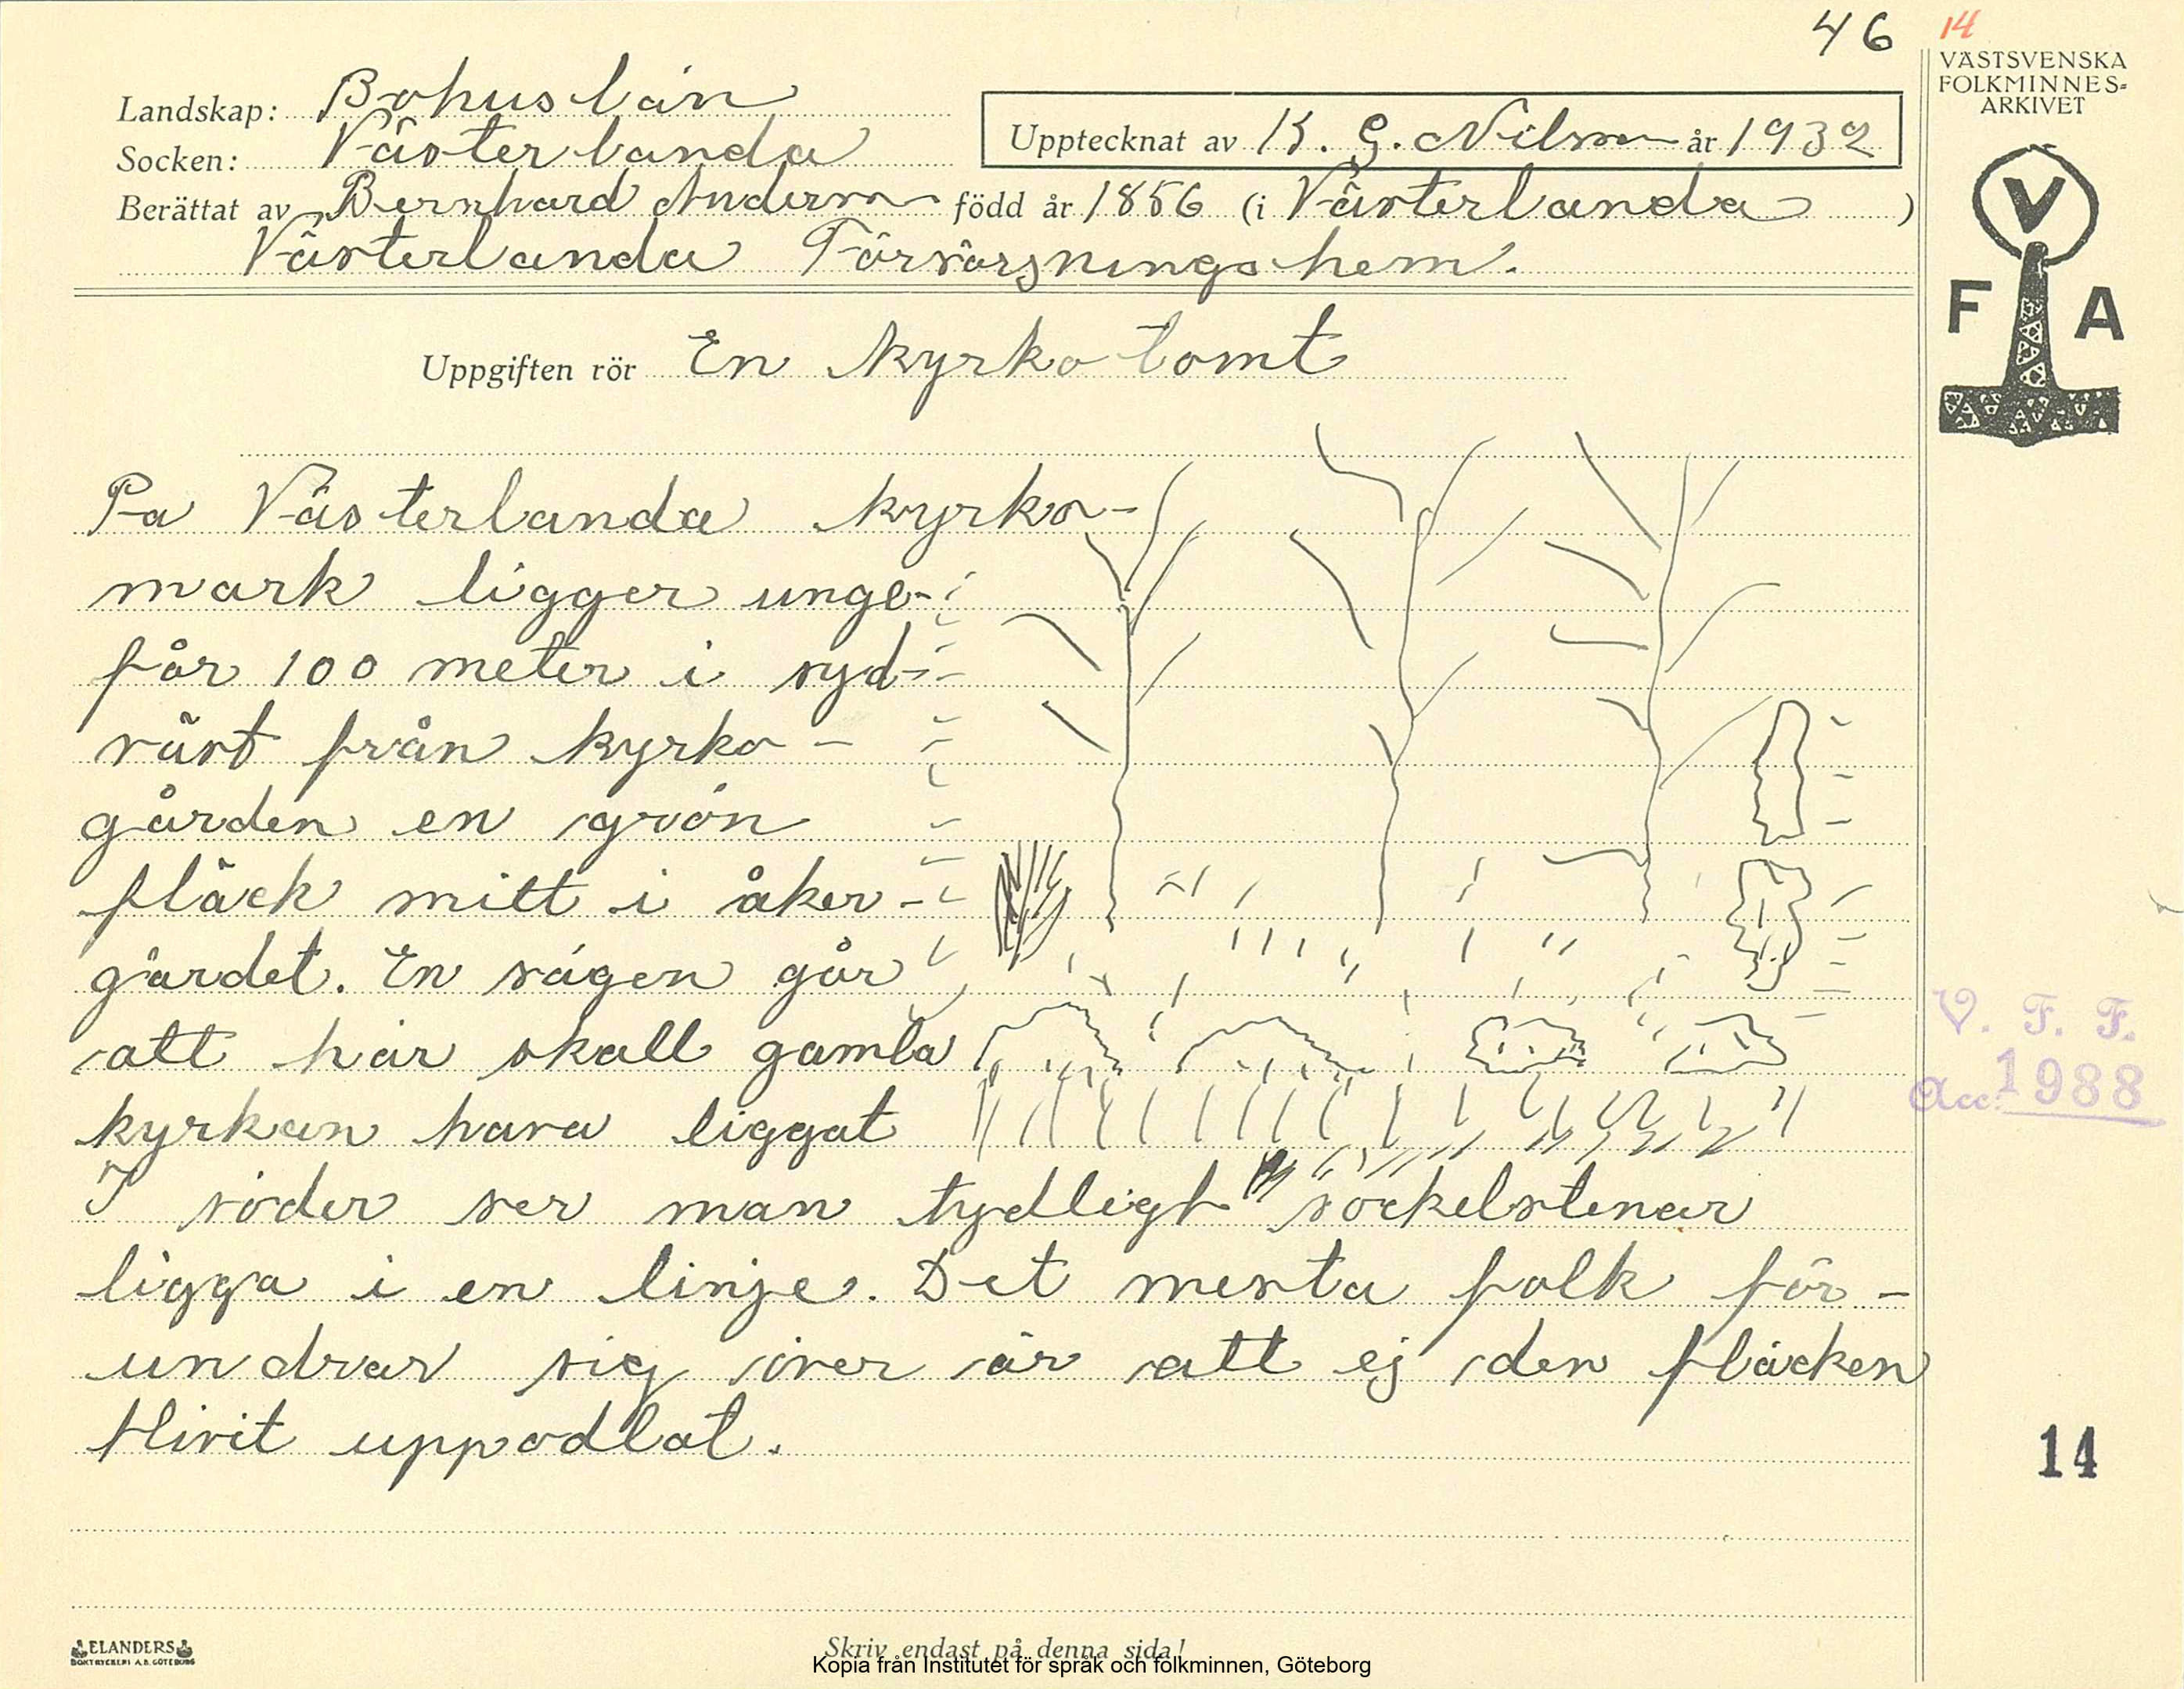 46 14
VÄSTSVENSKA
FOLKMINNES-
ARKIVET
Landskap: Bohuslän
Socken: Västerlanda
Upptecknat av K. G. Nilson år 1932
Berättat av Bernhard Anderson född år 1856 (i Västerlanda)
Västerlanda Försörjningshem.
V
F A
Uppgiften rör En kyrkotomt
På Västerlanda kyrko-
mark ligger unge-
fär 100 meter i syd-
väst från kyrko-
gården en grön
fläck mitt i åker-
gärdet. En sägen går
att här skall gamla
kyrkan hava liggat
I söder ser man tydligt sockelstenar
ligga i en linje. Det mesta folk för-
undrar sig över är att ej den fläcken
blivit uppodlat.
V. F. F.
Acc. 1988
14
ELANDERS
BOKTRYCKERI A.B. GÖTEBORG
Skriv endast på denna sida!
Kopia från Institutet för språk och folkminnen, Göteborg